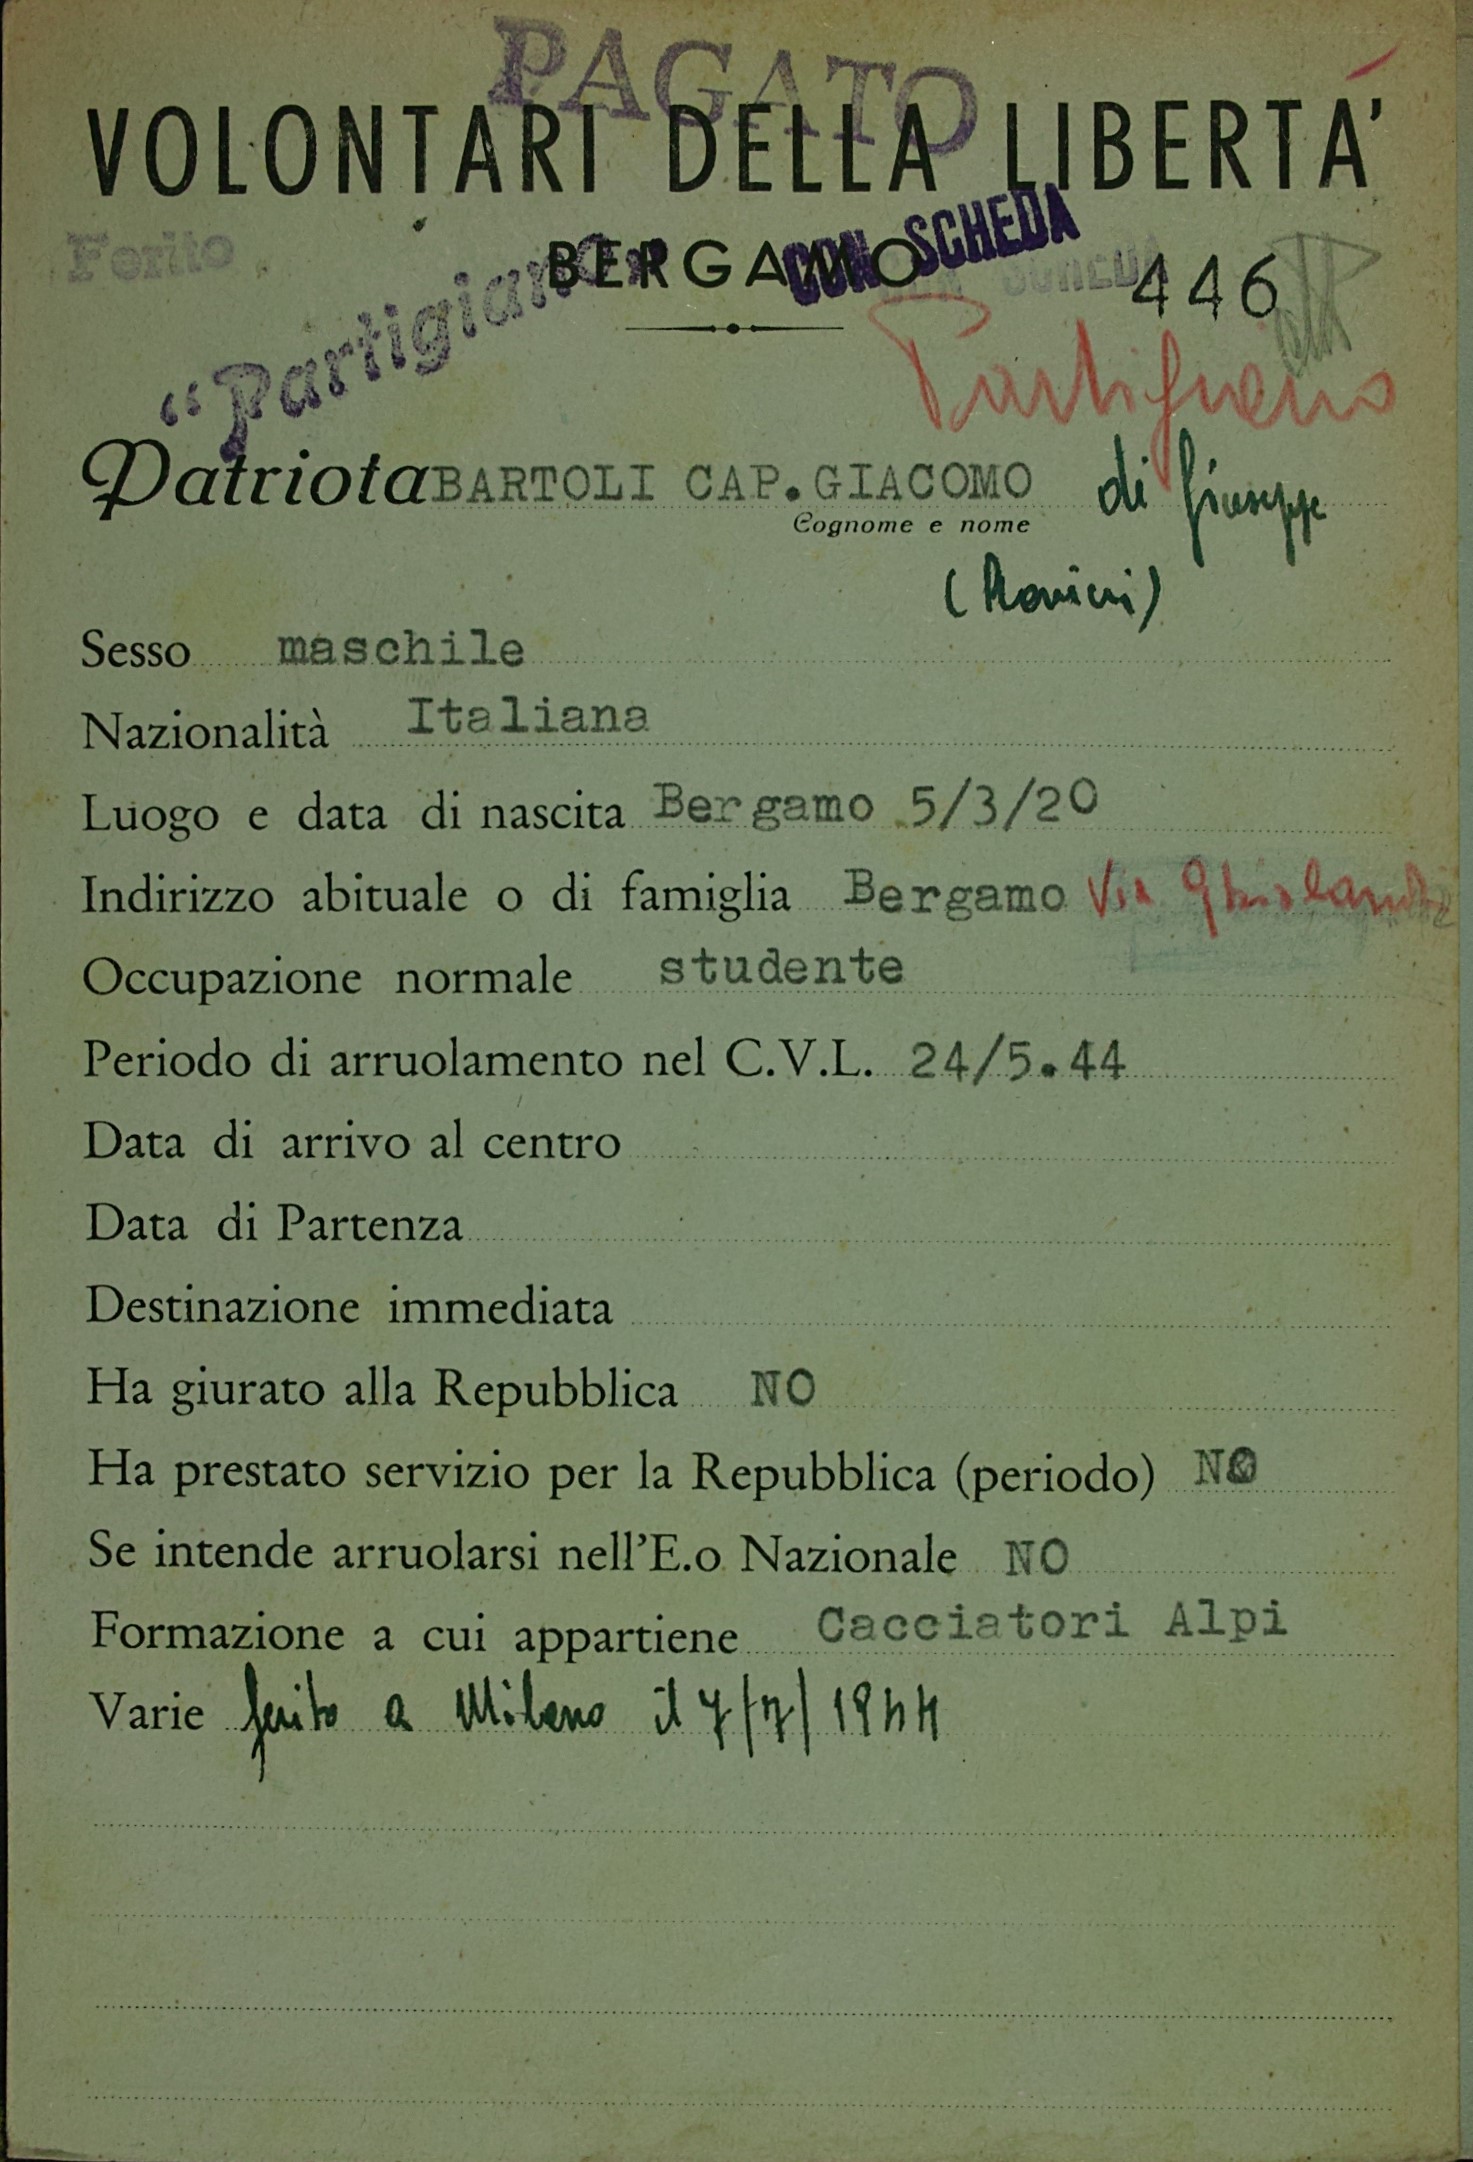 PAGATO
VOLONTARI DELLA LIBERTA'
Ferito
BERGAMO
CON SCHEDA
446
"Partigiano"
Partigiano
Patriota BARTOLI CAP.GIACOMO di Giuseppe
Cognome e nome
Sesso maschile
Nazionalità Italiana
Luogo e data di nascita Bergamo 5/3/20
Indirizzo abituale o di famiglia Bergamo Via Ghislandi
Occupazione normale studente
Periodo di arruolamento nel C.V.L. 24/5.44
Data di arrivo al centro
Data di Partenza
Destinazione immediata
Ha giurato alla Repubblica NO
Ha prestato servizio per la Repubblica (periodo) NO
Se intende arruolarsi nell'E.o Nazionale NO
Formazione a cui appartiene Cacciatori Alpi
Varie ferito a Milano il 7/7/1944